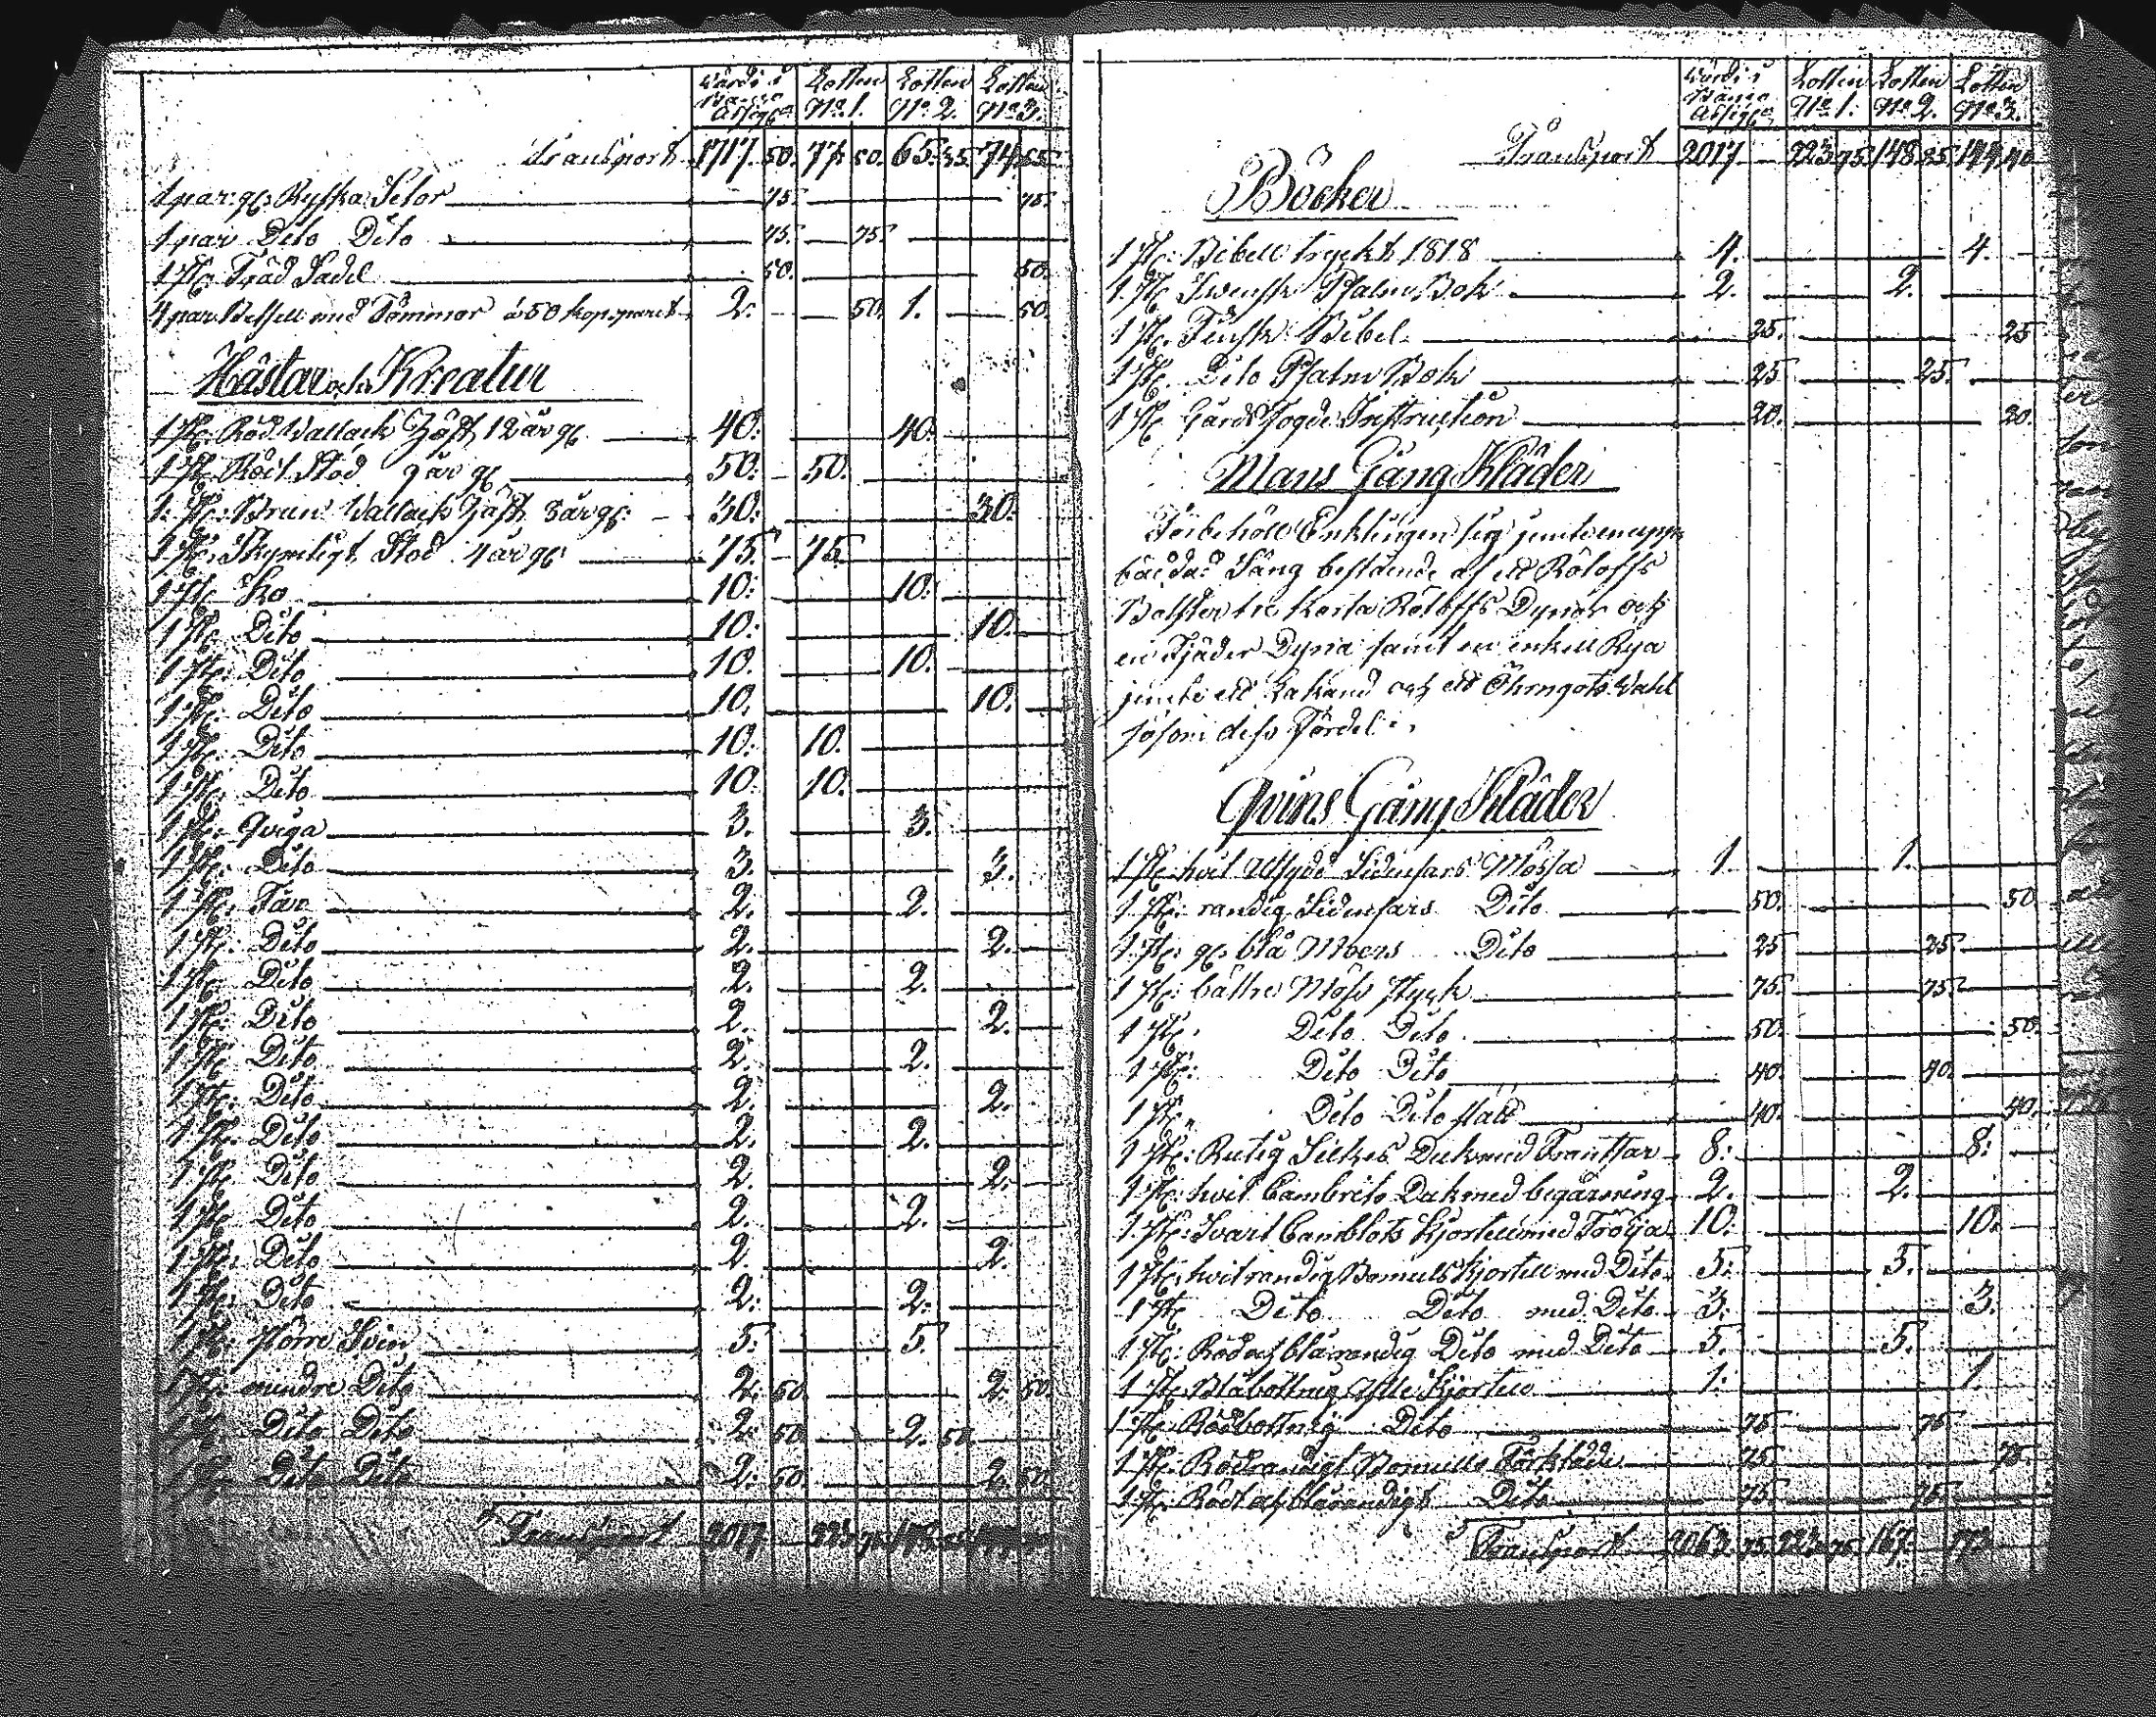 Värdi i Banco Assign: Lotten No 1. Lotten No 2. Lotten No 3.
Transport 1717. 50. 77. 50. 65. 35. 74. 65.
1 par: gl: Ryska Selor 75. 75.
1 par Dito Dito 75. 75.
1 st: Träd Sadel 50. 50.
4 par Betsell med Tömmar à 50 kop: paret 2. 50. 1. 50.
Hästar och Kreatur
1 st: Röd Wallack Häst 12 år gl: 40: 40:
1 st: Rödt Stod 9 år gl: 50: 50.
1 st: Brun Wallack Häst 3 år gl: 30: 30.
1 st: Skymligt Stod 4 år gl: 75. 75.
1 st: Ko 10: 10:
1 st: Dito 10: 10.
1 st: Dito 10. 10.
1 st: Dito 10. 10.
1 st: Dito 10: 10.
1 st: Dito 10: 10.
1 st: Qviga 3. 3.
1 st: Dito 3. 3.
1 st: Får 2. 2.
1 st: Dito 2. 2.
1 st: Dito 2. 2.
1 st: Dito 2. 2.
1 st: Dito 2. 2.
1 st: Dito 2. 2.
1 st: Dito 2. 2.
1 st: Dito 2. 2.
1 st: Dito 2. 2.
1 st: Dito 2. 2.
1 st: Dito 2: 2:
1 st: större Svin 5. 5.
1 st: mindre Dito 2: 50. 2: 50.
1 st: Dito Dito 2: 50. 2. 50.
1 st: Dito Dito 2: 50. 2. 50.
Transport 2017. 223 75
Värdi i Banco Assign: Lotten No 1. Lotten No 2. Lotten No 3.
Transport 2017. 223. 75. 148. 85.
Böcker
1 st: Bibell tryckt 1818 4. 4.
1 st: Swensk Psalm Bok 2. 2.
1 st: Finsk Bibel 25. 25
1 st: Dito Psalm Bok 25 25.
1 st: Gårds fogde Instruction 20. 20.
Mans Gång Kläder
Förbehöll Enklingen sig jemte en upp
bäddad Säng bestående af ett Röloffs
Bolster tre korta Röloffs Dynor och
en Fjäder Dyna samt en enkell Rya
jemte ett Lakand och ett Öhrngots Wahl
såsom dess Fördel.
Qvins Gång Kläder
1 st: hvit Sidensars Mössa 1. 1.
1 st: randig Sidensars Dito 50. 50
1 st: gl: blå Moers Dito 25 25.
1 st: bättre Möss styck 75. 75.
1 st: Dito Dito 50. 50.
1 st: Dito Dito 40. 40.
1 st: Dito Dito slätt 40. 40.
1 st: Rutig Silkes Duk med Frantsar 8: 8:
1 st: hvit Cambrits Duk med begarning 2. 2.
1 st: Svart Camblots Kjortell med Tröija 10: 10.
1 st: hvitrandig Bomuls Kjortell med Dito 5: 5.
1 st: Dito Dito med Dito 3: 3.
1 st: Röd och blårandig Dito med Dito 5. 5.
1 st: Blåbottnig Ylle Kjortell 1: 1.
1 st: Rödbottnig Dito 75 75
1 st: Rödrandigt Bomulls Förkläde 75 75.
1 st: Rödt och blårandigt Dito 75. 75.
Transport 2063. 75. 223. 75. 167. 173